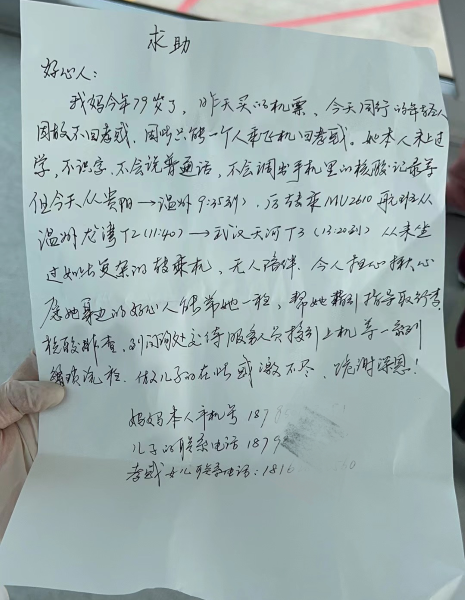 求助
好心人：
我妈今年79岁了，昨天买的机票，今天同行的年轻人
因故不回孝感，因此只能一个人乘飞机回孝感。她本人未上过
学，不识字，不会说普通话，不会调出手机里的核酸记录等
但今天从贵阳→温州9:35到），后转乘MU2610航班从
温州龙湾T2(11:40)→武汉天河T3(13:20到)从未坐
过如此复杂的转乘机，无人陪伴，令人担心揪心
愿她身边的好心人能帮她一程，帮她指导取行李
核酸排查，到问询处交待服务人员接引上机等一系列
繁琐流程。做儿子的在此感激不尽，跪谢深恩！
妈妈本人手机号 187
儿子的联系电话 1879
孝感女儿联系电话：1816